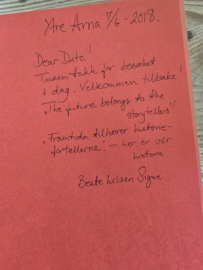 Are Arna 7/6-2018.
Dear Data!
Tusen takk for besøket
i dag. Velkommen tilbake!
"The future belongs to the
storytellers"!
"Framtida tilhører historie-
fortellerne." - her er vår
historie.
Beate hilsen Signe.